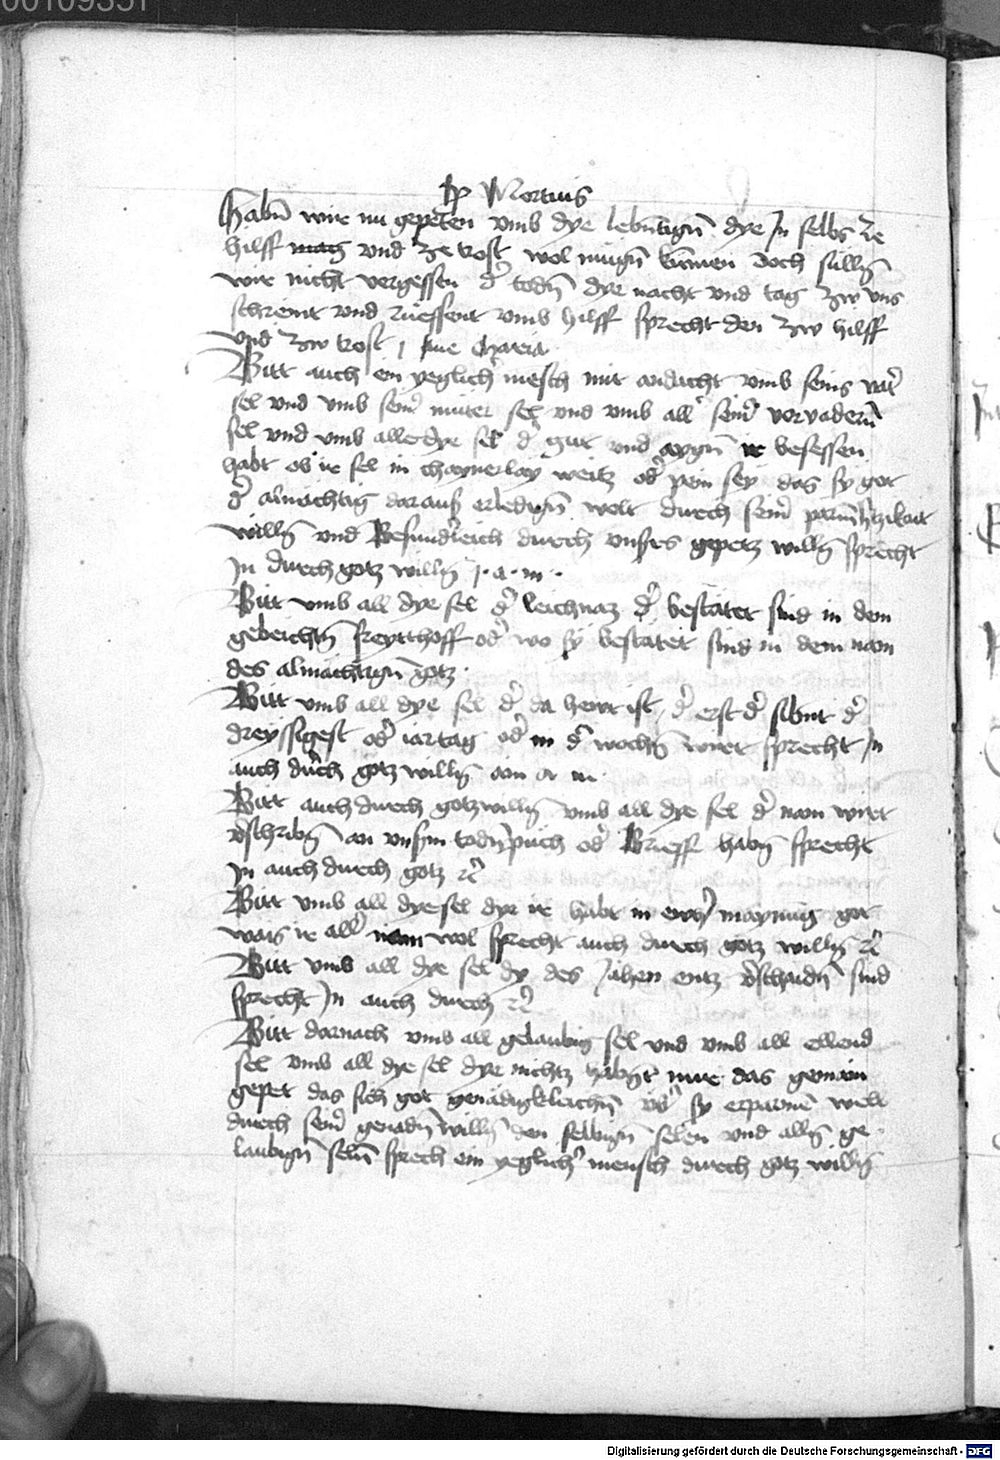 00109351
P Mortuis
Habn̄ wir nu gepeten vmb dye lebntign̄ dye Jn selbs ze
hilff mag vnd ze trost wol mugn̄ kūmen doch sulln̄
wir nicht vergessen d̄ todn̄ dye nacht vnd tag zw vns
schreint vnd rueffent vmb hilff sprecht den zw hilff
vnd zw trost 1 aue Maria
Bitt auch ein yeglich̄ mesch mit andacht vmb seins vat̄
sel vnd vmb sein̄ muter sel vnd vmb all̄ sein̄ vorvadern̄
sel vnd vmb alle dye sel d̄ gut vnd aygn̄ ir besessen
habt ob ir sel in chaynerlay weitz od̄ pein sey das sy got
d̄ almächtig daraus erledign̄ welt durch sein̄ parmh̄tzikait
willn̄ vnd Besundleich durch vnsers gepetz willn̄ sprecht
Jn durch gotz willn̄ 1 . a . m .
Bitt vmb all dye sel d̄ leichnaz d̄ bestätet sind in dem
geweichtn̄ freytthoff od̄ wo sy bestätet sind in dem nam
des almächtign̄ gotz .
Bitt vmb all dye sel d̄ da hewt ist d̄ erst d̄ sibnt d̄
dreyssigest od̄ iartag od̄ in d̄ wochn̄ wirt sprecht Jn
auch durch gotz willn̄ ain a m .
Bitt auch durch gotz willn̄ vmb all dye sel d̄ nam wirt
v̄schribn̄ an vnserm todn̄puch od̄ Brieff habn̄ sprecht
Jn auch durch gotz ꝛc̄
Bitt vmb all dye sel dye ir habt in ewr̄ maynung got
wais ir all̄ nam wol sprecht auch durch gotz willn̄ ꝛc̄
Bitt vmb all dye sel dy des Jahen entz v̄schaidn̄ sind
sprecht Jn auch durch ꝛc̄
Bitt darnach vmb all gelaubig sel vnd vmb all ellend
sel vmb all dye sel dye nichtz habnt nur das gemain
gepet das sich got genädigkleichn̄ vb̄ sy erparmē well
durch sein̄ genadn̄ willn̄ den selbign̄ selen vnd alln̄ ge
laubign̄ seln̄ sprech ein yeglich̄ mensch durch gotz willn̄
Digitalisierung gefördert durch die Deutsche Forschungsgemeinschaft - DFG